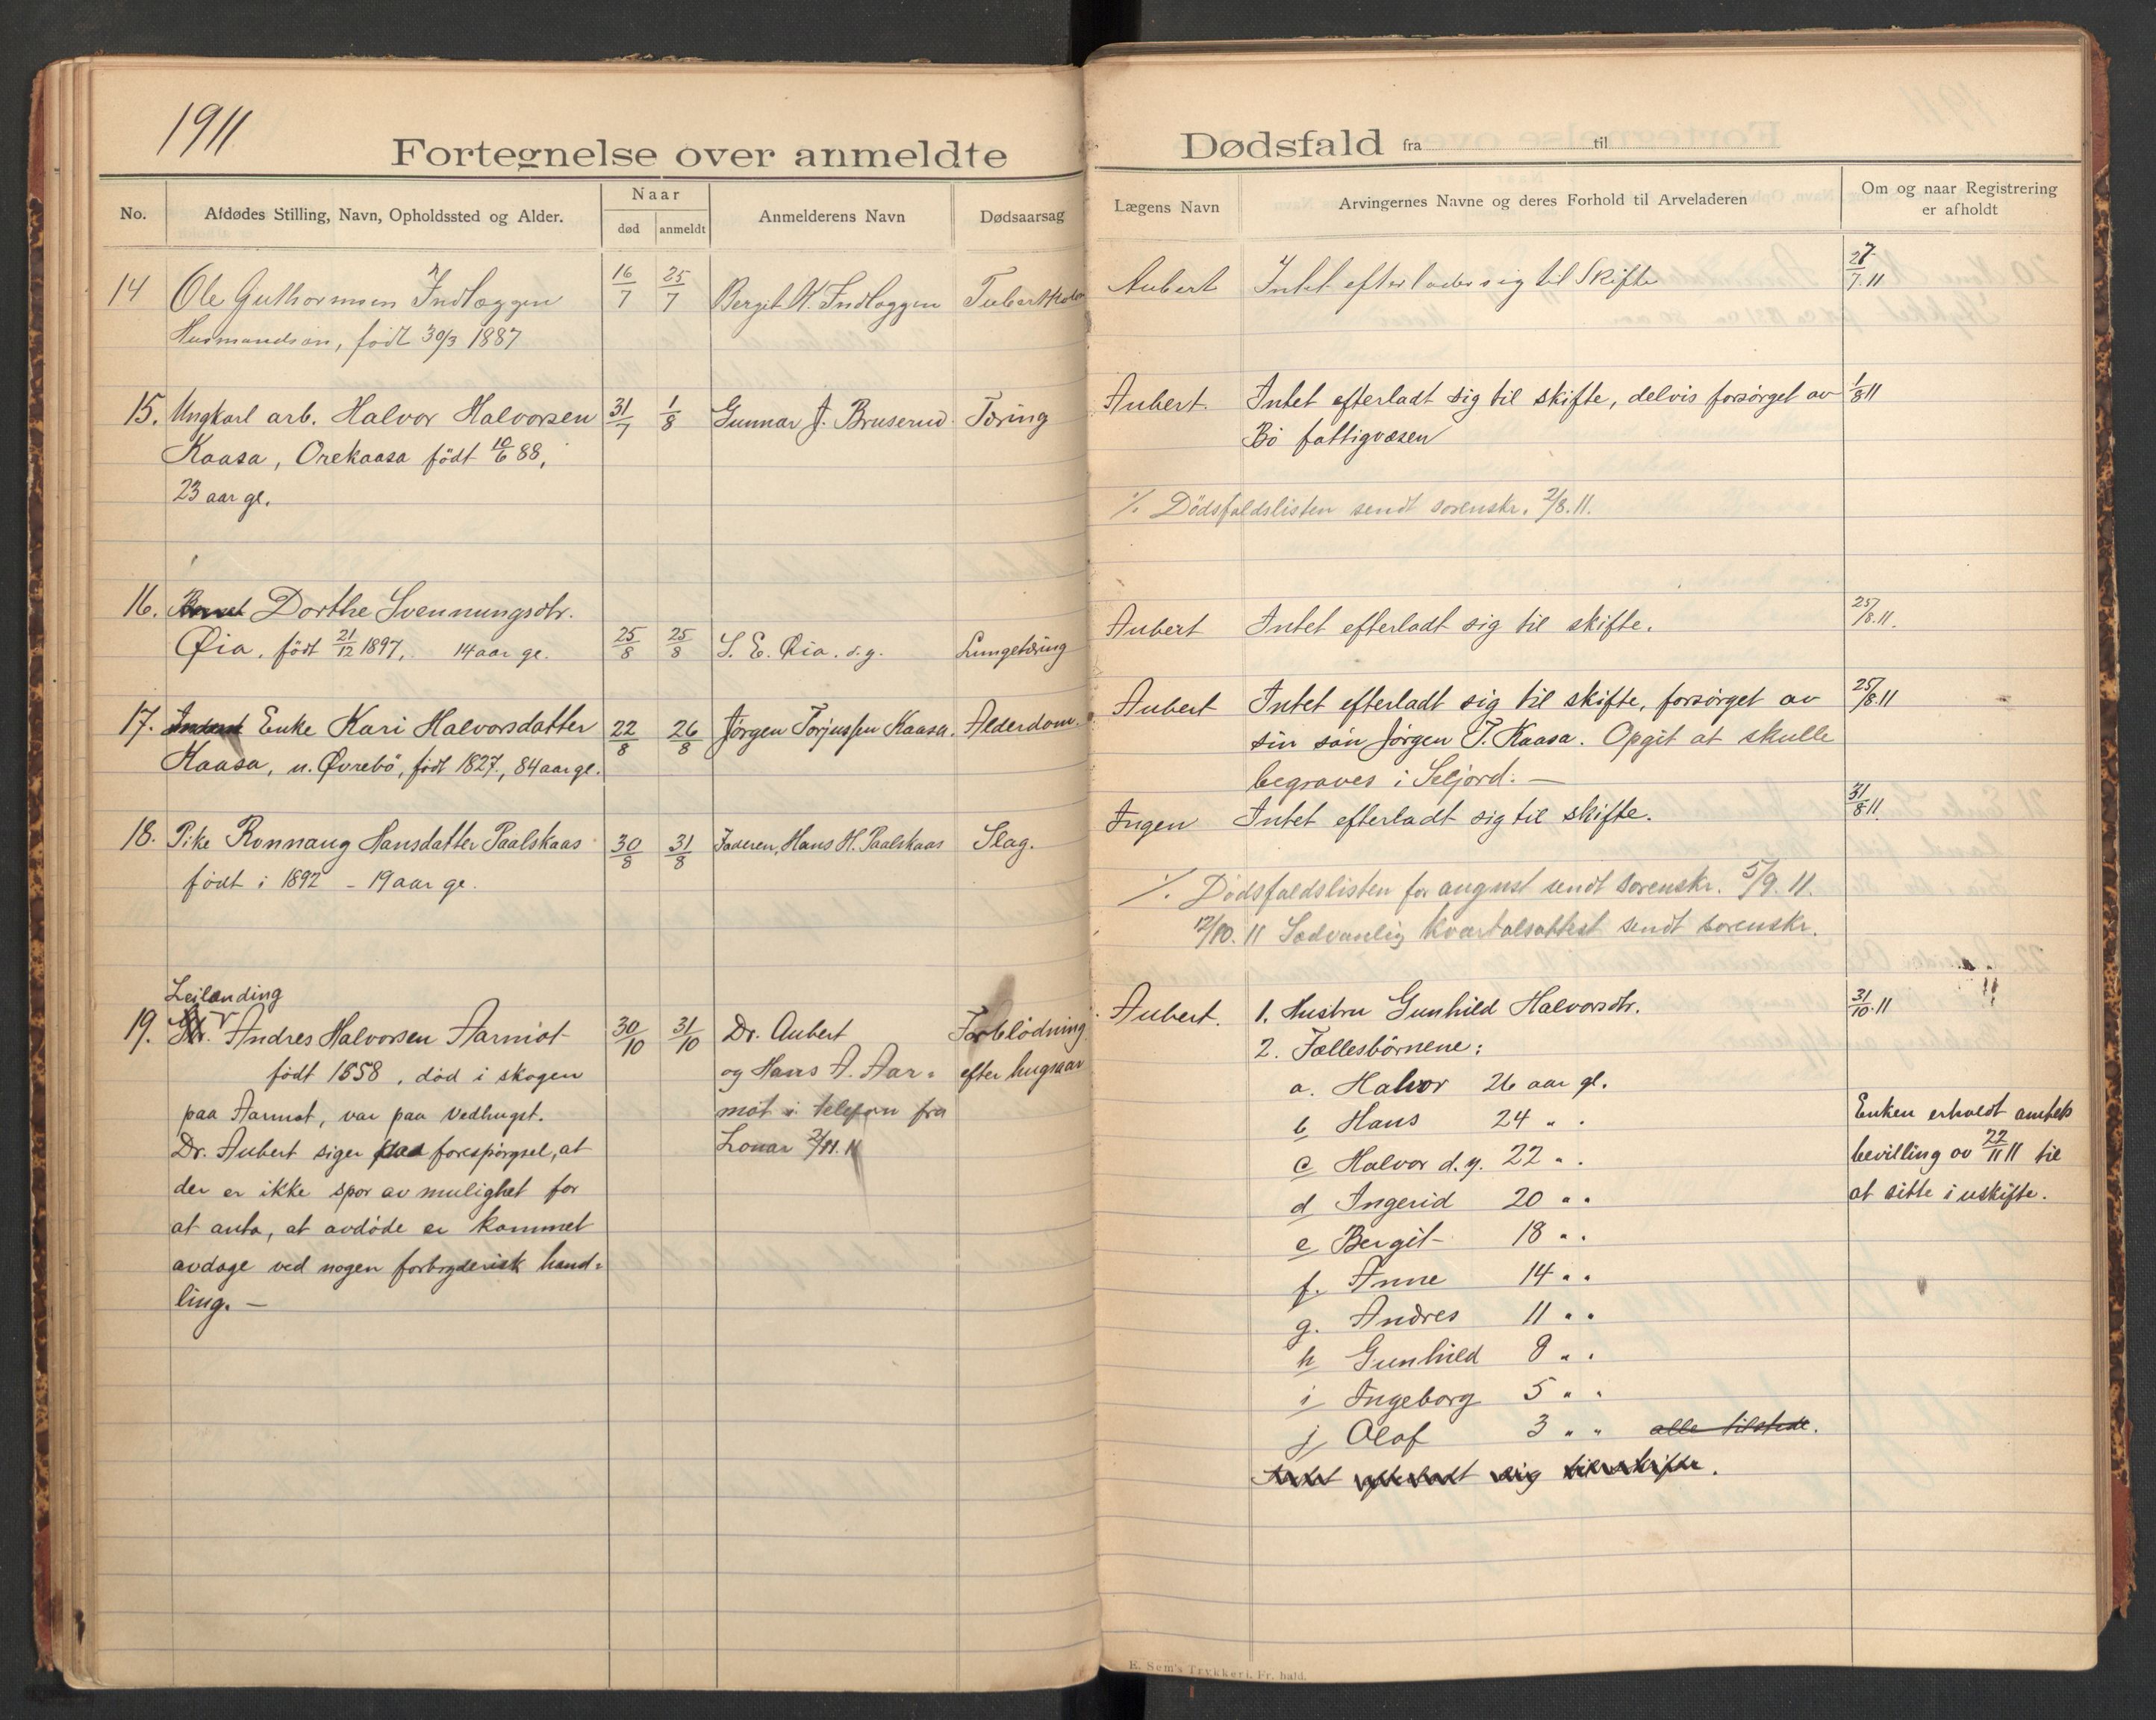 1911
Fortegnelse over anmeldte
No.
Afdødes Stilling, Navn, Opholdssted og Alder.
Naar
død
anmeldt
Anmelderens Navn
Dødsaarsag
14 Ole Guthormsen Indlæggen 16/7 25/7 Bergit H. Indlæggen
Husmandsøn, födt 30/3 1887
15. Ungkarl arb. Halvor Halvorsen 31/7 1/8 Gunnar J. Bruserud. Tæring
Kaasa, Orekaasa födt 10/6 88,
23 aar gl.
16. Barnet Dorthe Svennungsdtr.
Øia, födt 21/12 1897, 14 aar gl. 25/8 25/8 S. E. Øia. s.g. Lungetæring
17. Enke Kari Halvorsdatter 22/8 26/8 Jørgen Torjussen Kaasa. Alderdom.
Kaasa, u. Øvrebö, födt 1827, 84 aar gl.
18. Pike Ronnaug Hansdatter Paalskaas 30/8 31/8 Faderen, Hans H. Paalskaas Slag.
födt i 1892 - 19 aar gl.
Leilending
19. Andres Halvorsen Aarmot 30/10 31/10 Dr. Aubert Forblödning
födt 1858, död i skogen og Hans A. Aar= efter hugsaar
paa Aarmot, var paa vedhugst. mot i telefon fra
Dr. Aubert siger paa forespörgsel, at 2/11.11
der er ikke spor av mulighet for
at anta, at avdöde er kommet
avdage ved nogen forbryderisk hand=
ling. —
Dødsfald fra til
Lægens Navn
Arvingernes Navne og deres Forhold til Arveladeren
Om og naar Registrering
er afholdt
Aubert Intet efterlader sig til Skifte 27/7.11
Aubert. Intet efterladt sig til skifte, delvis forsörget av 1/8 11
Bö fattigvæsen
%. Dödsfaldslisten sendt sorenskr. 2/8.11.
Aubert Intet efterladt sig til skifte. 25/8.11.
Aubert Intet efterladt sig til skifte, forsörget av 25/8.11
sin sön Jörgen T. Kaasa. Opgit at skulle
begraves i Seljord. —
Ingen Intet efterladt sig til skifte. 31/8 11.
%. Dödsfaldslisten for august sendt sorenskr. 5/9. 11.
12/10. 11 Sedvanlig kvartalsattest sendt sorenskr.
Aubert. 1. Hustru Gunhild Halvorsdtr. 31/10.11
2. Fællesbörnene:
a. Halvor 26 aar gl.
b Hans 24 " "
c Halvor d.y. 22 " "
d Ingerid 20 " "
e Bergit 18 " "
f. Anne 14 " "
g. Andres 11 " "
h Gunhild 9 " "
i Ingeborg 5 " "
j Olaf 3 " " alle tilstede.
Intet efterladt sig til skifte.
Enken erholdt amtets
bevilling av 22/11 11 til
at sitte i uskifte.
E. Sem's Trykkeri, Fr. hald.